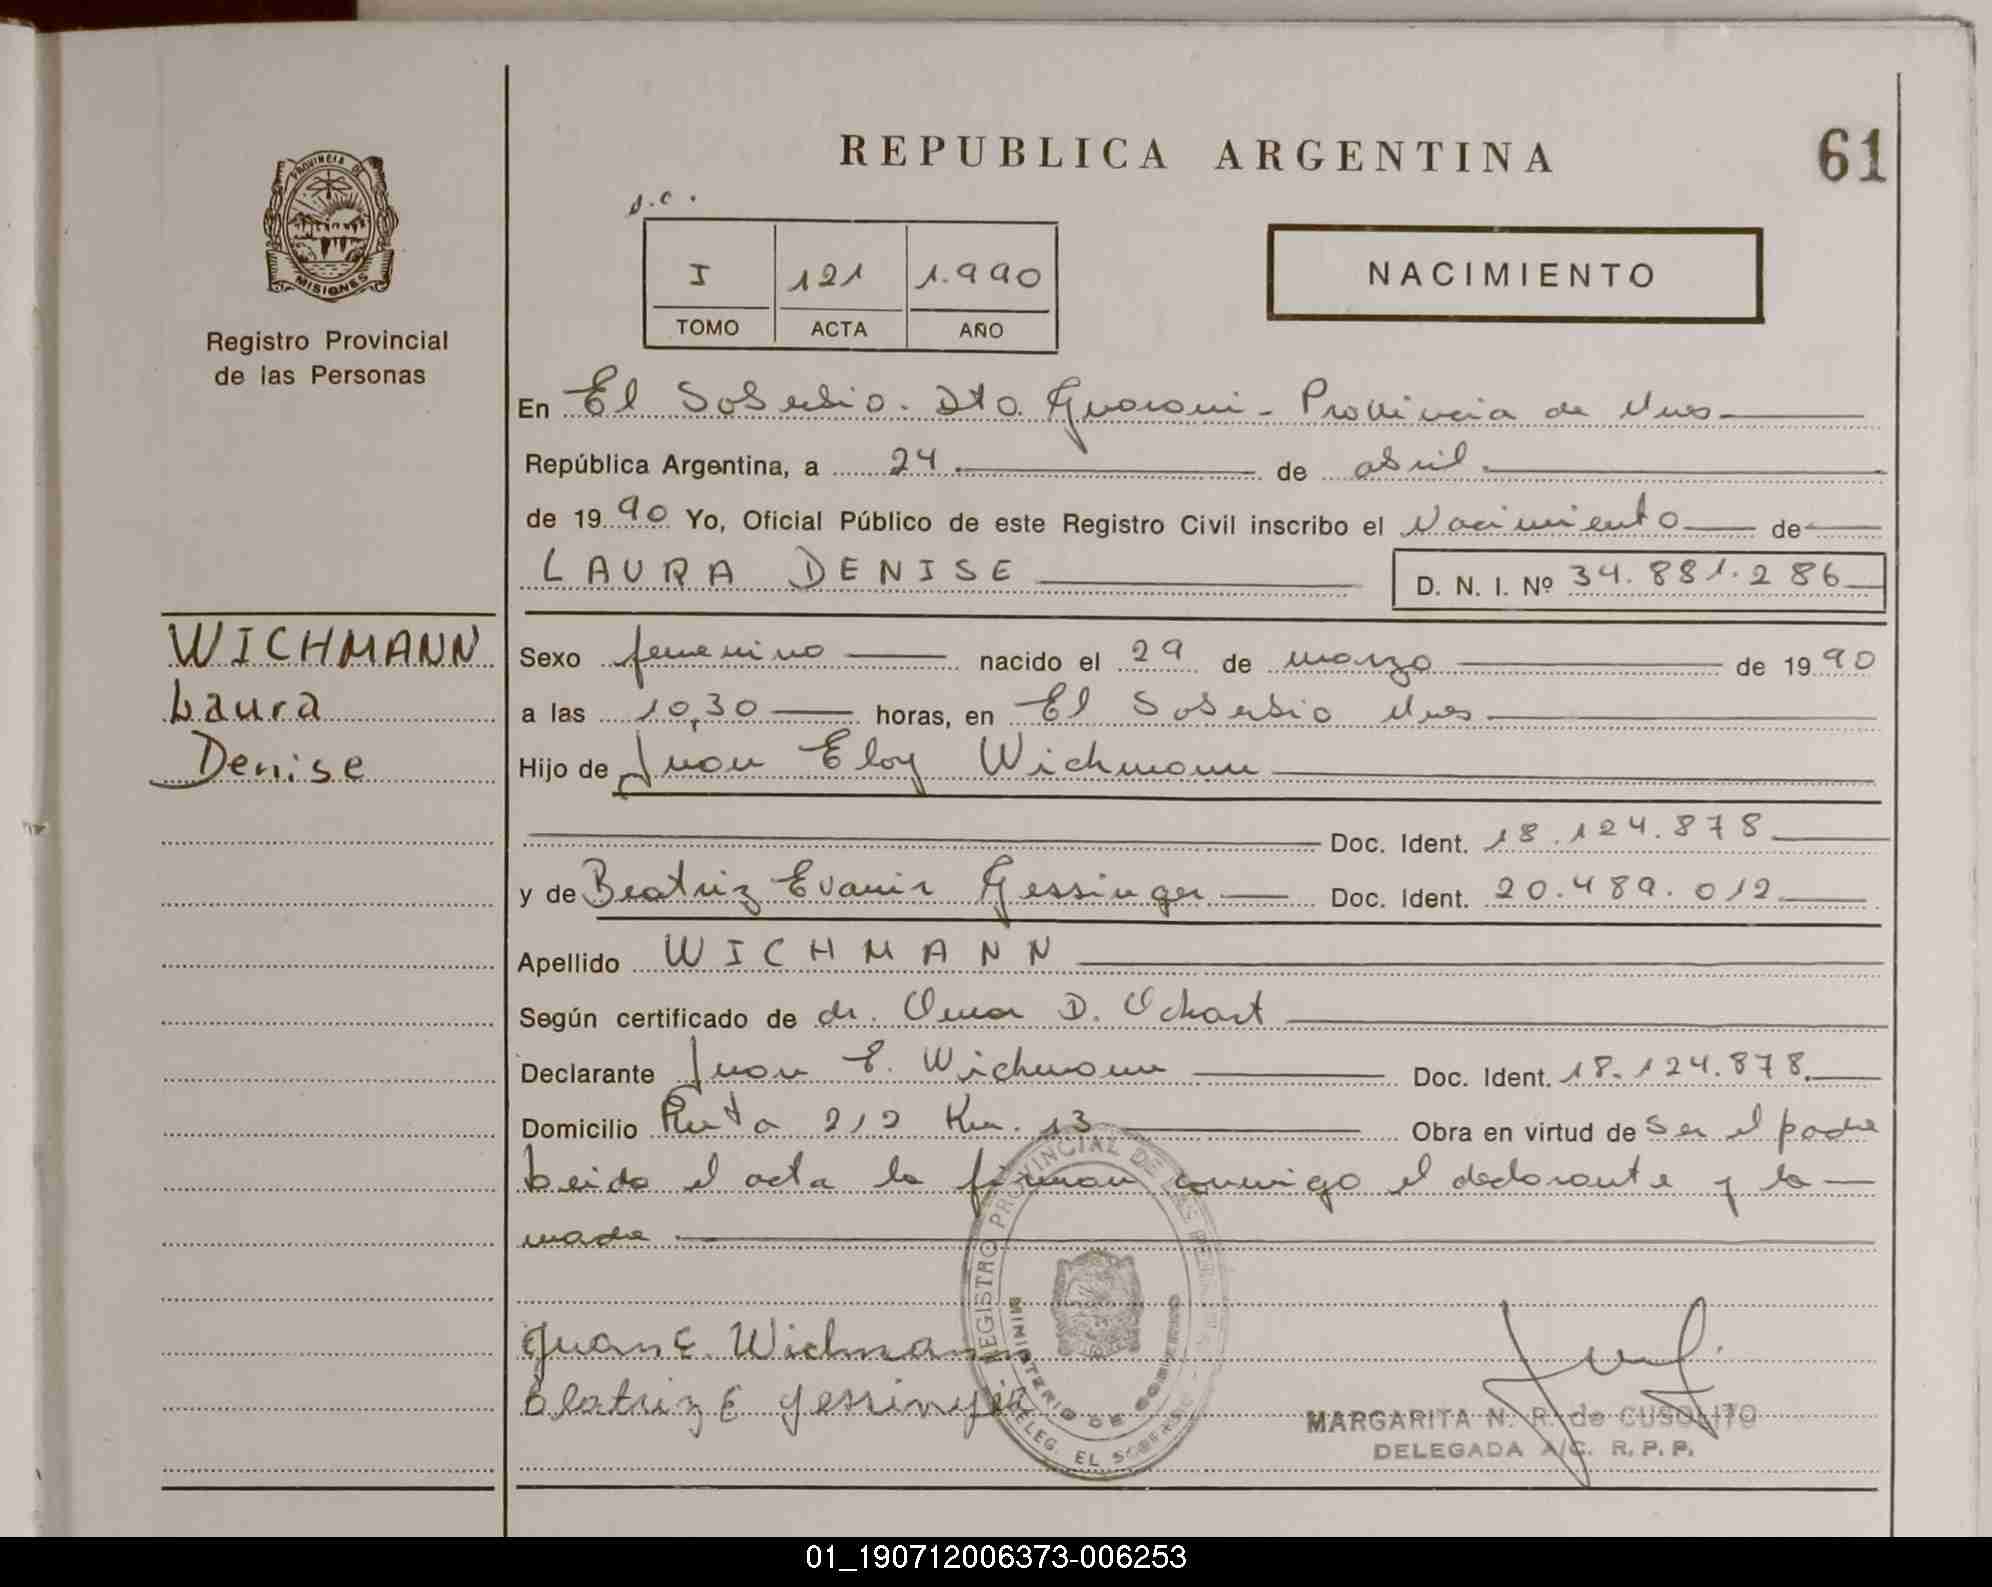 REPUBLICA ARGENTINA
61
PROVINCIA DE
MISIONES
Registro Provincial
de las Personas
s.c.
I 121 1.990
TOMO ACTA AÑO
NACIMIENTO
En El Soberbio. Dto. Guarani - Provincia de Mnes
República Argentina, a 24 de abril
de 1990 Yo, Oficial Público de este Registro Civil inscribo el Nacimiento de
LAURA DENISE
D. N. I. Nº 34.881.286
WICHMANN
Laura
Denise
Sexo femenino nacido el 29 de marzo de 1990
a las 10,30 horas, en El Soberbio Mnes
Hijo de Juan Eloy Wichmann
Doc. Ident. 18.124.878
y de Beatriz Evanir Gessinger Doc. Ident. 20.489.012
Apellido WICHMANN
Según certificado de dr. Omar D. Ochart
Declarante Juan E. Wichmann Doc. Ident. 18.124.878.
Domicilio Ruta 212 Km. 13 Obra en virtud de ser el padre
Leida el acta la firman conmigo el declarante y la
madre
Juan E. Wichmann
Beatriz E Gessinger
REGISTRO PROVINCIAL DE LAS PERSONAS
MINISTERIO DE GOBIERNO
DELEG. EL SOBERBIO
MARGARITA N. R. de CUSOLITO
DELEGADA A/C. R. P. P.
01_190712006373-006253